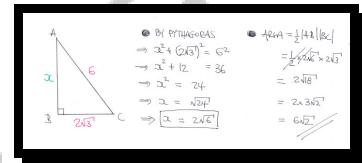 A
x
6
B
2√3
C
● BY PYTHAGORAS
⇒ x² + (2√3)² = 6²
⇒ x² + 12 = 36
⇒ x² = 24
⇒ x = √24
⇒ x = 2√6
● AREA = ½|AB||BC|
= ½ × 2√6 × 2√3
= 2√18
= 2×3√2
= 6√2